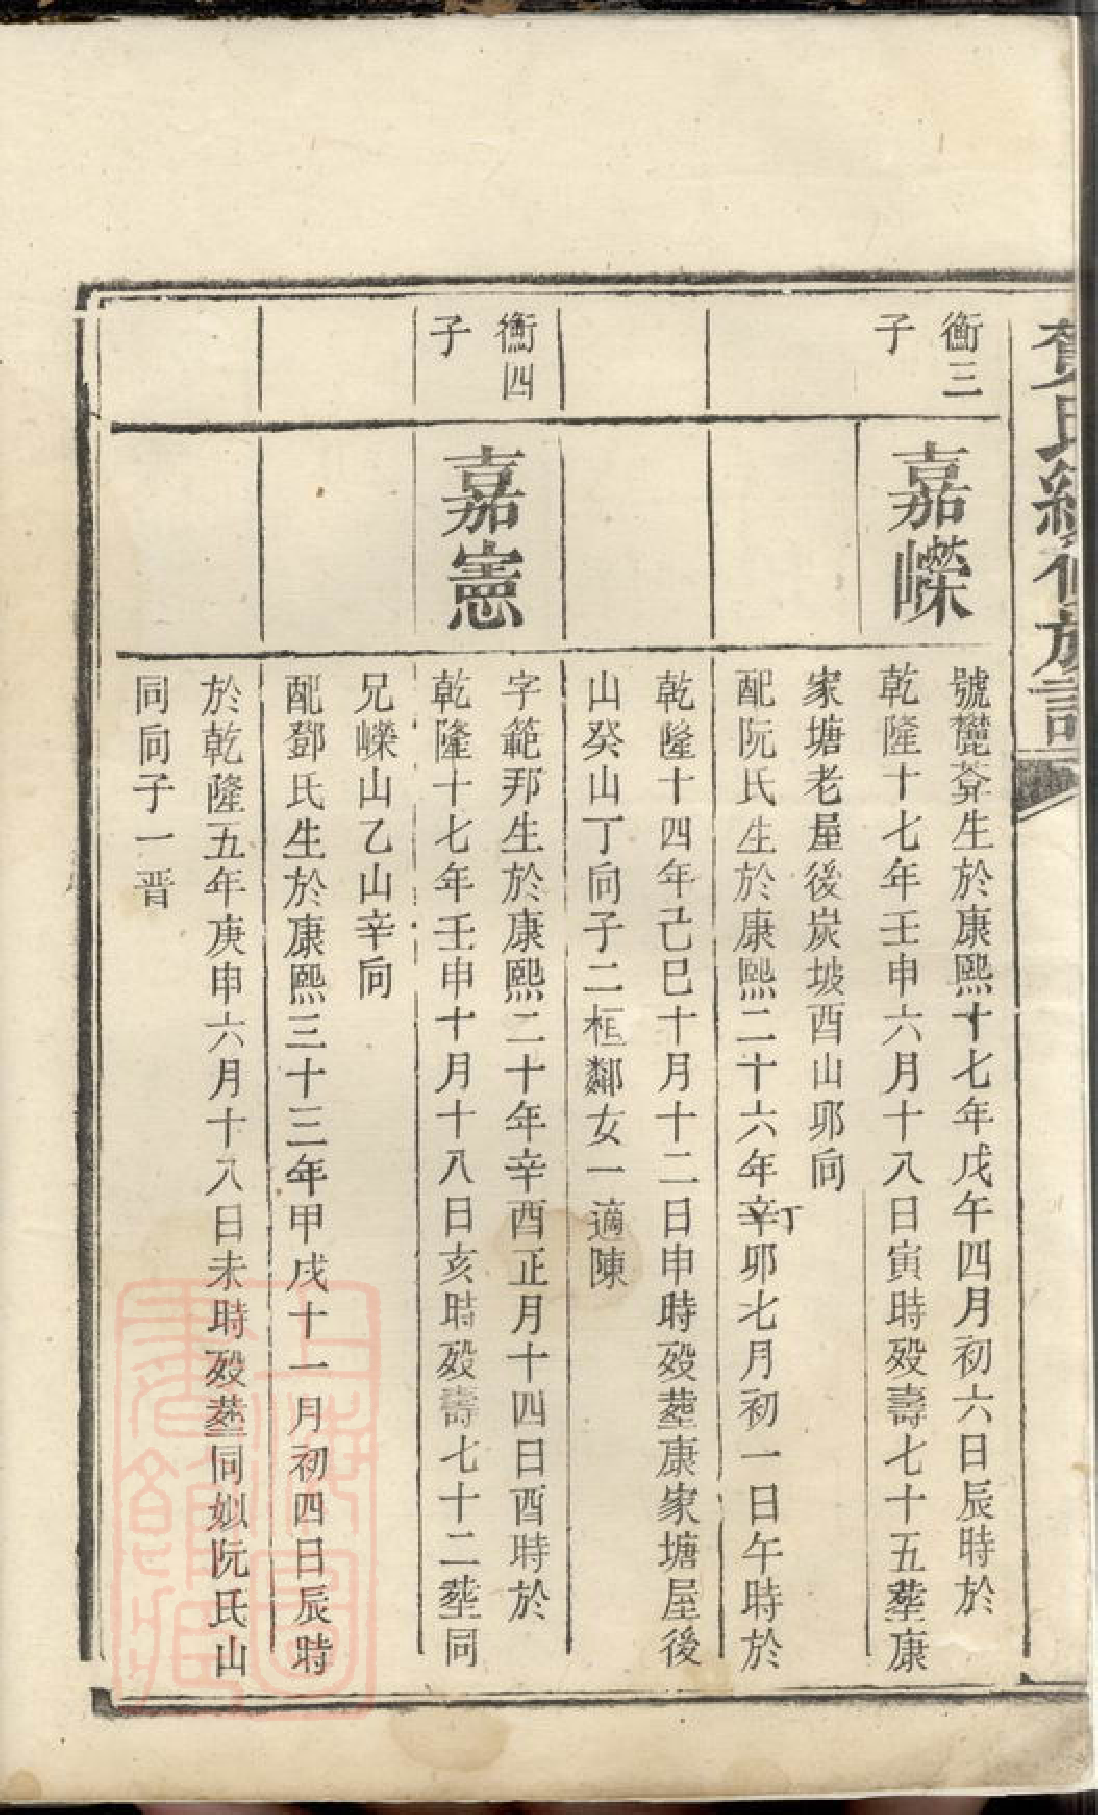 氏續修族譜
衡三
子
嘉嶸
號麓菴生於康熙十七年戊午四月初六日辰時於
乾隆十七年壬申六月十八日寅時殁壽七十五塟康
家塘老屋後炭坡酉山卯向
配阮氏生於康熙二十六年辛卯七月初一日午時於
丁
乾隆十四年己巳十月十二日申時殁塟康家塘屋後
山癸山丁向子二框鄰女一適陳
衡四
子
嘉憲
字範邦生於康熙二十年辛酉正月十四日酉時於
乾隆十七年壬申十月十八日亥時殁壽七十二塟同
兄嶸山乙山辛向
配鄧氏生於康熙三十三年甲戌十一月初四日辰時
於乾隆五年庚申六月十八日未時殁塟同姒阮氏山
同向子一晋
上海圖
書館藏